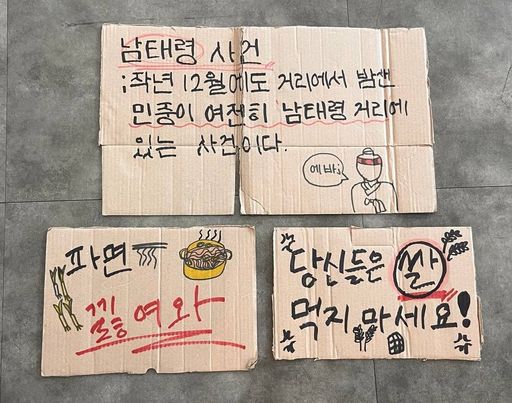 남태령 사건
;작년 12월에도 거리에서 밤샌
민중이 여전히 남태령 거리에
있는 사건이다.
에바;
파면
끓여와
당신들은 쌀
먹지 마세요!